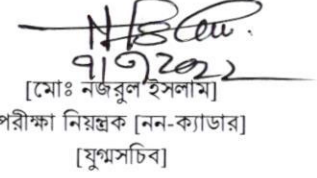 [মোঃ নজরুল ইসলাম]
পরীক্ষা নিয়ন্ত্রক [নন-ক্যাডার]
[যুগ্মসচিব]